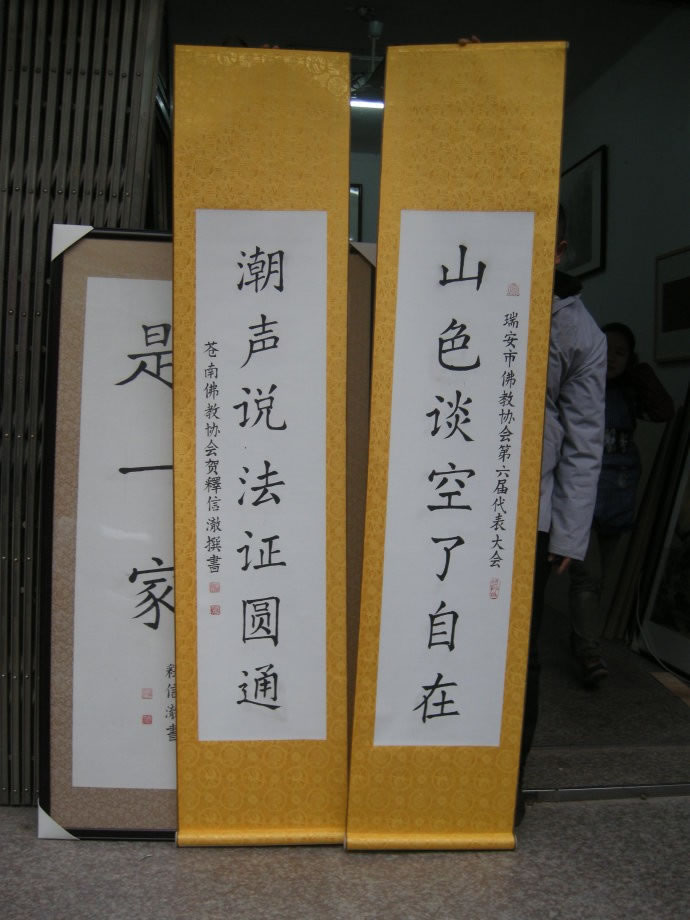 瑞安市佛教协会第六届代表大会
山色谈空了自在
潮声说法证圆通
苍南佛教协会贺釋信澈撰書
是一家
釋信澈書